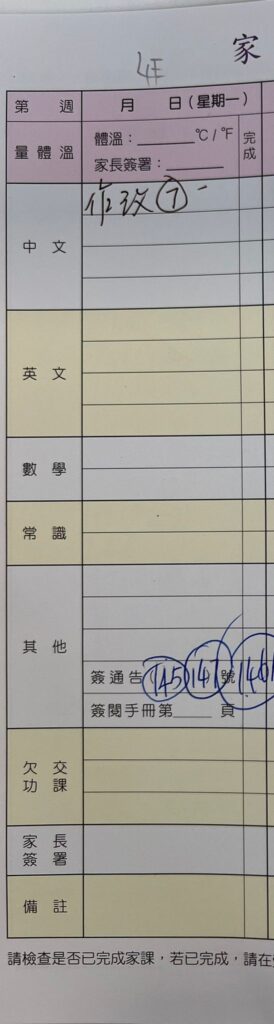 4E
家
第 週 月 日(星期一)
量體溫 體溫：______°C/°F 完成
家長簽署：______
中文 作改⑦
英文
數學
常識
其他
簽通告 145 147 號 146
簽閱手冊第____頁
欠交功課
家長簽署
備註
請檢查是否已完成家課，若已完成，請在